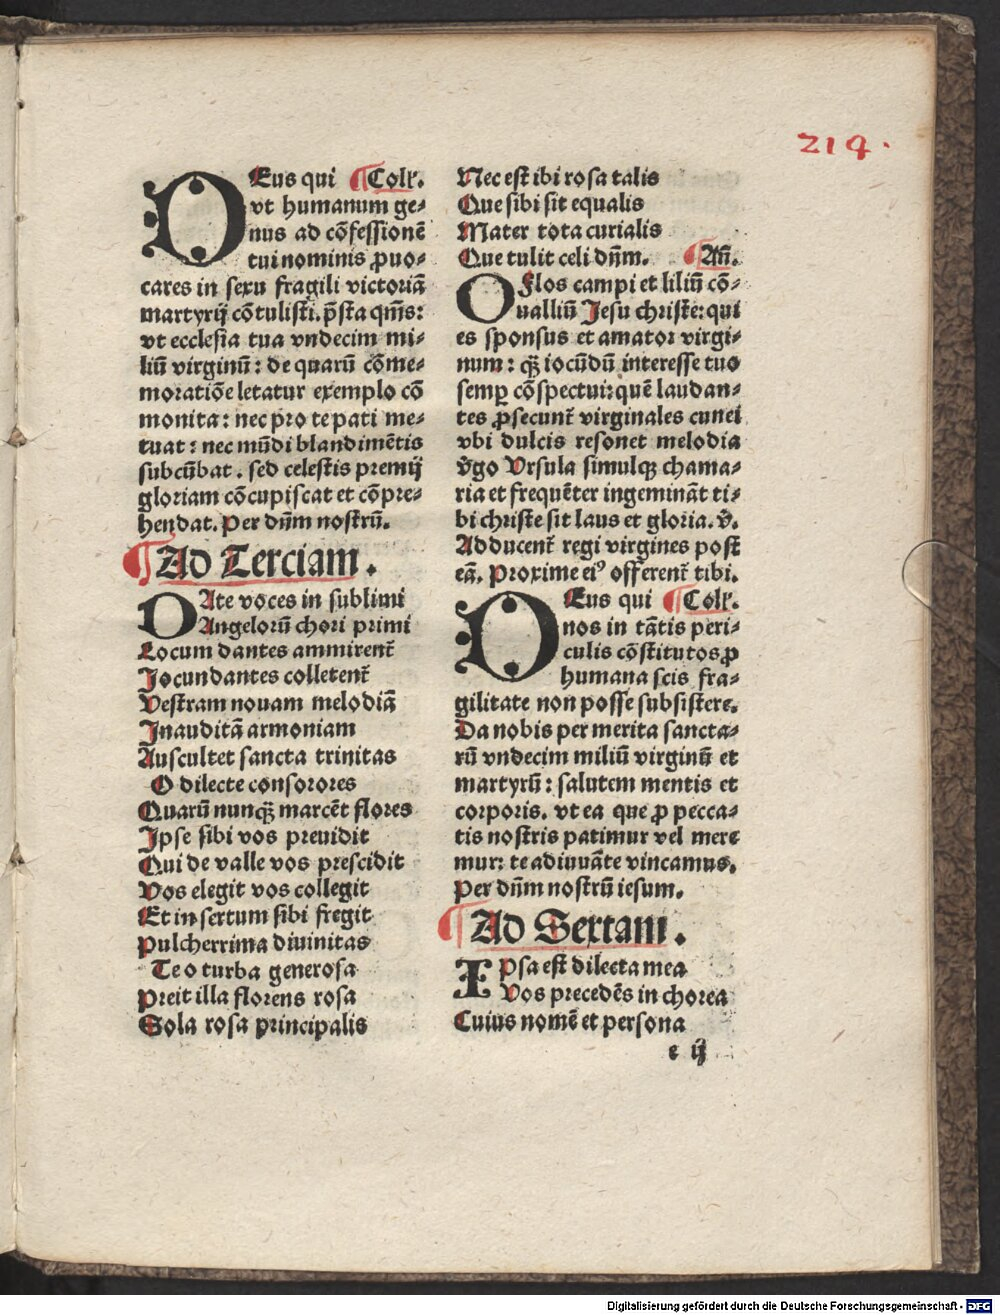 214.
DEus qui ¶Colꝉ.
vt humanum ge⸗
nus ad cōfessionē
tui nominis ꝓuo⸗
cares in sexu fragili victoriā
martyrij cōtulisti. p̄sta qm̄s:
vt ecclesia tua vndecim mi⸗
liū virginū: de quarū cōme⸗
moratiōe letatur exemplo cō
monita: nec pro te pati me⸗
tuat: nec mūdi blandimētis
subcūbat. sed celestis premij
gloriam cōcupiscat et cōpre⸗
hendat. Per dn̄m nostrū.
¶Ad Terciam.
DAte voces in sublimi
Angelorū chori primi
Locum dantes ammirent̄
Jocundantes colletent̄
Vestram nouam melodiā
Jnauditā armoniam
Auscultet sancta trinitas
O dilecte consorores
Quarū nunqꝫ marcēt flores
Jpse sibi vos preuidit
Qui de valle vos prescidit
Vos elegit vos collegit
Et in sertum sibi fregit
Pulcherrima diuinitas
Te o turba generosa
Preit illa florens rosa
Sola rosa principalis
Nec est ibi rosa talis
Que sibi sit equalis
Mater tota curialis
Que tulit celi dn̄m. ¶An̄.
O Flos campi et liliū cō⸗
ualliū Jesu christe: qui
es sponsus et amator virgi⸗
num: qꝫ iocūdū interesse tuo
semꝑ cōspectui: quē laudan⸗
tes ꝓsecunt̄ virginales cunei
vbi dulcis resonet melodia
v̄go Vrsula simulqꝫ chama⸗
ria et frequēter ingemināt ti⸗
bi christe sit laus et gloria. v̄.
Adducent̄ regi virgines post
eā. Proxime eiꝰ offerent̄ tibi.
DEus qui ¶Colꝉ.
nos in tātis peri⸗
culis cōstitutos ꝓ
humana scis fra⸗
gilitate non posse subsistere.
Da nobis per merita sancta⸗
rū vndecim miliū virginū et
martyrū: salutem mentis et
corporis. vt ea que ꝓ pecca⸗
tis nostris patimur vel mere
mur: te adiuuāte vincamus.
Per dn̄m nostrū iesum.
¶Ad Sextam.
IPsa est dilecta mea
Vos precedēs in chorea
Cuius nomē et persona
e ij
Digitalisierung gefördert durch die Deutsche Forschungsgemeinschaft - DFG